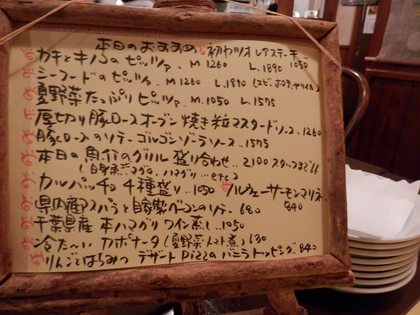 本日のおすすめ 初カツオ レアステーキ 1050
カキときのこのピッツァ M1260 L.1890
シーフードのピッツァ M1260 L.1890
夏野菜たっぷりピッツァ M.1050 L.1575
厚切り豚ロースオーブン焼き粒マスタードソース 1260
豚ロースのソテーゴルゴンゾーラソース 1575
本日の魚介のグリル盛り合わせ 2100
カルパッチョ 4種盛り 1050 ノルウェーサーモンマリネ 840
県内産アスパラと自家製ベーコンのソテー 690
千葉県産 本ハマグリワイン蒸し 1050
冷た〜いカポナータ(夏野菜トマト煮) 630
りんごとはちみつ デザートPizzaバニラトッピング 840